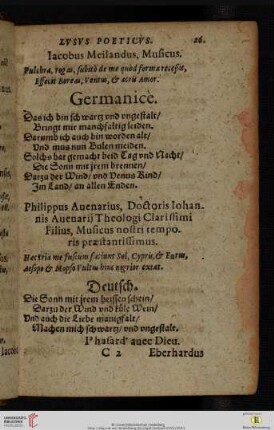 LVSVS POETICVS. 16.
Iacobus Meilandus, Musicus.
Pulchra, rogas, subitò de me quid forma recessit,
Effecit Boreas, Ventus, & acris Amor.
Germanice.
Das ich bin schwartz vnd vngestalt/
Bringt mir manchfaltig leiden.
Darumb ich auch bin worden alt/
Vnd mus nun Bulen meiden.
Solchs hat gemacht beid Tag vnd Nacht/
Die Sonn mit jrem brennen/
Darzu der Wind/ vnd Venus Kind/
Im Land/ an allen Enden.
Philippus Avenarius, Doctoris Iohan-
nis Avenarij Theologi Clarissimi
Filius, Musicus nostri tempo-
ris præstantissimus.
me fuscum faciunt Sol, Cypris, & Eurus,
Æsopo & Mopso Vultus hinc nigrior extat.
Deutsch.
Die Sonn mit jrem heissen schein/
Darzu der Wind vnd küle Wein/
Vnd auch die Liebe manigfalt/
Machen mich schwartz/ vnd vngestalt.
P hasard' auec Dieu.
C 2 Eberhardus